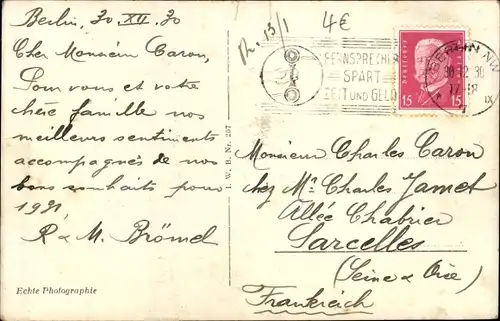 Berlin, 30 XII. 30
Cher Monsieur Caron,
Pour vous et votre
chère famille nos
meilleurs sentiments
accompagnés de nos
bons souhaits pour
1931
R & M. Brömel
Echte Photographie
I. W. B. Nr. 207
15/1
4€
FERNSPRECHEN
SPART
ZEIT UND GELD
BERLIN NW
30.12.30
17-18
15 15
Monsieur Charles Caron
chez Mr Charles Jamet
Allée Chabrier
Sarcelles
(Seine & Oise)
Frankreich